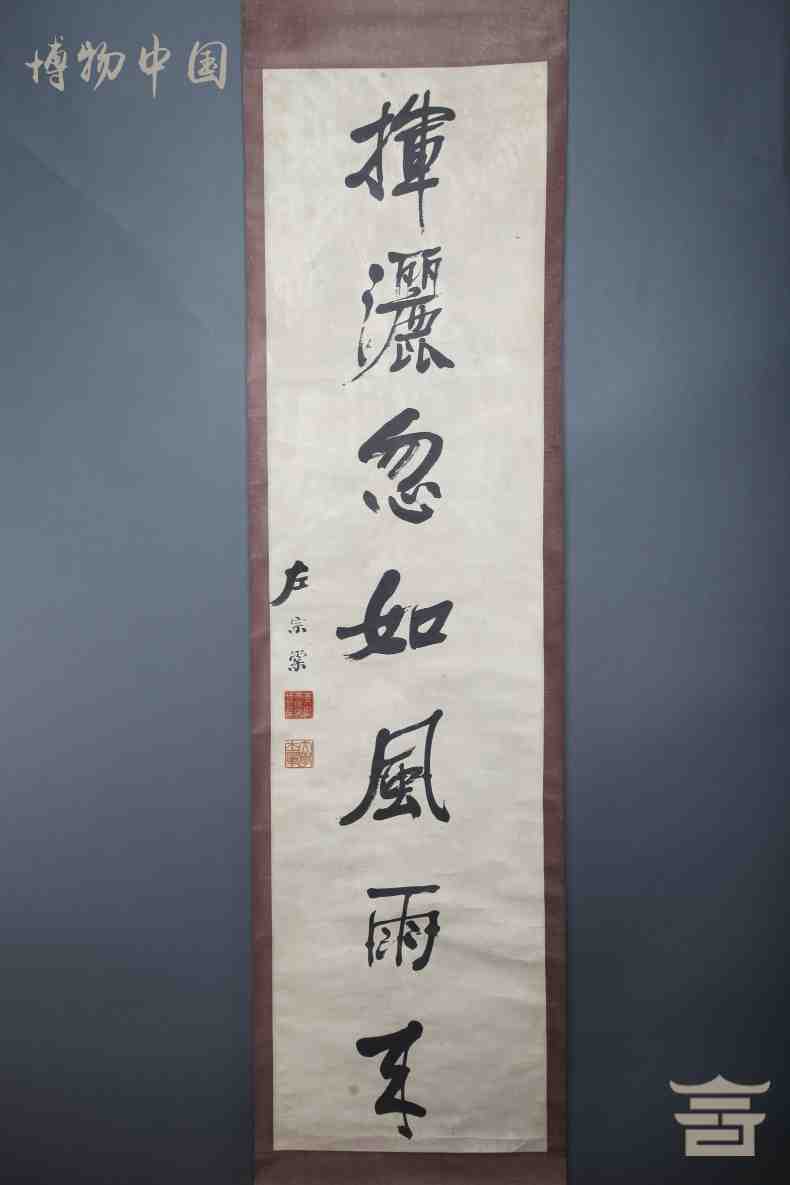 博物中国
揮灑忽如風雨来
左宗棠